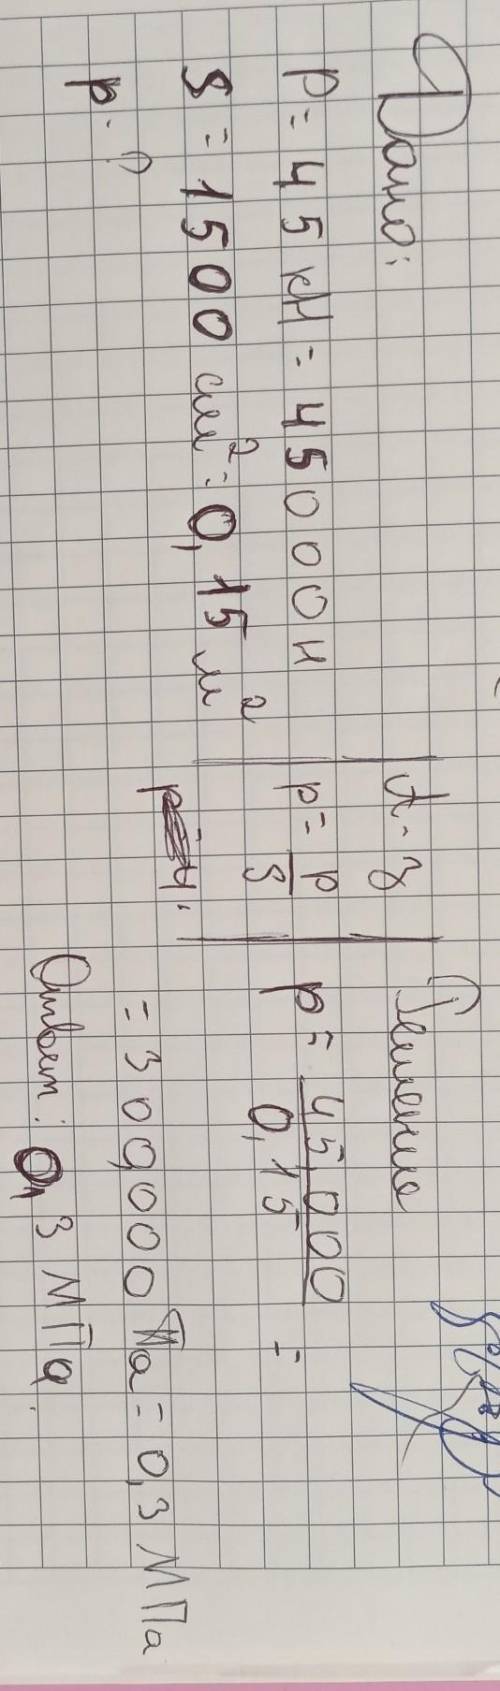 Дано:
P = 45 кН = 45000 н
S = 1500 см² = 0,15 м²
p - ?
А-З
p = P/S
Решение
p = 45,000/0,15 =
= 300,000 Па = 0,3 МПа
Ответ: 0,3 МПа.